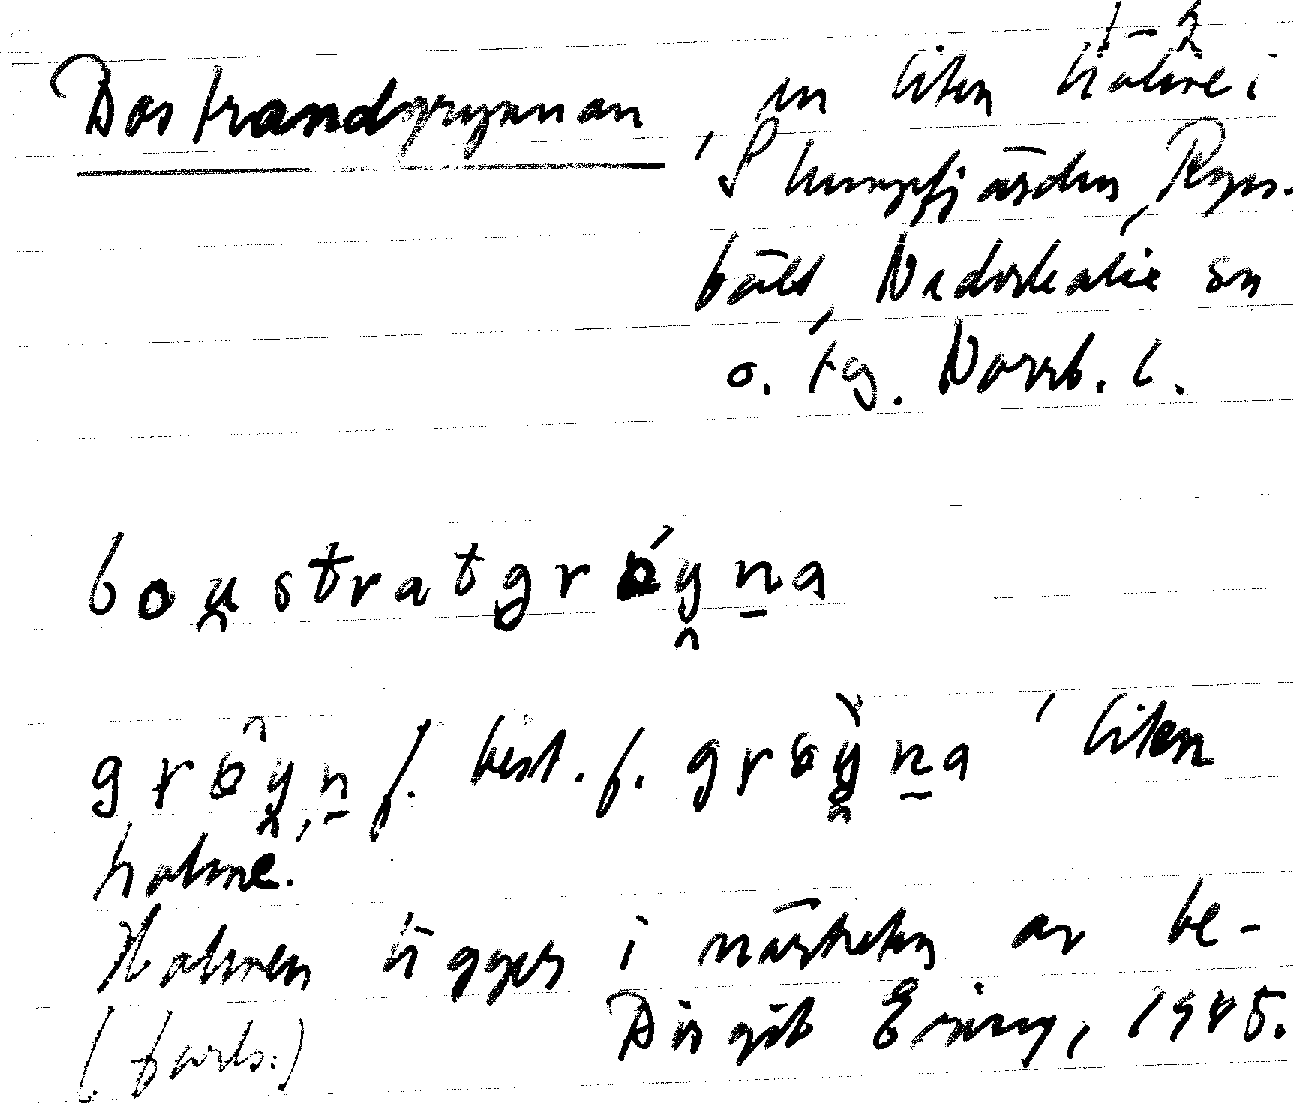 1–2
Bostrandgrynnan, en liten holme i
Strumpfjärden, Ryss-
bält, Nederkalix sn
o. tg. Norrb. l.
bou̯stratgröy̯na
gröy̯n f. best. f. gröy̯na 'liten
holme'.
Holmen ligger i närheten av be-
(forts.) Birgit Eining, 1945.